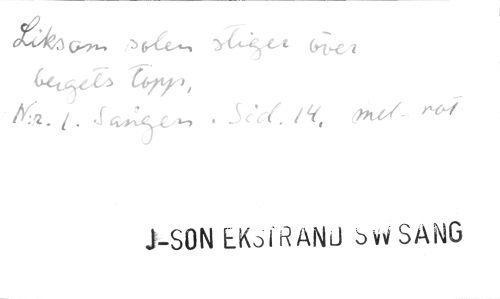 Liksom solen stiger över
bergets topp,
N:r. 1. Sången. Sid. 14. mel- not
J-SON EKSTRAND SW SANG